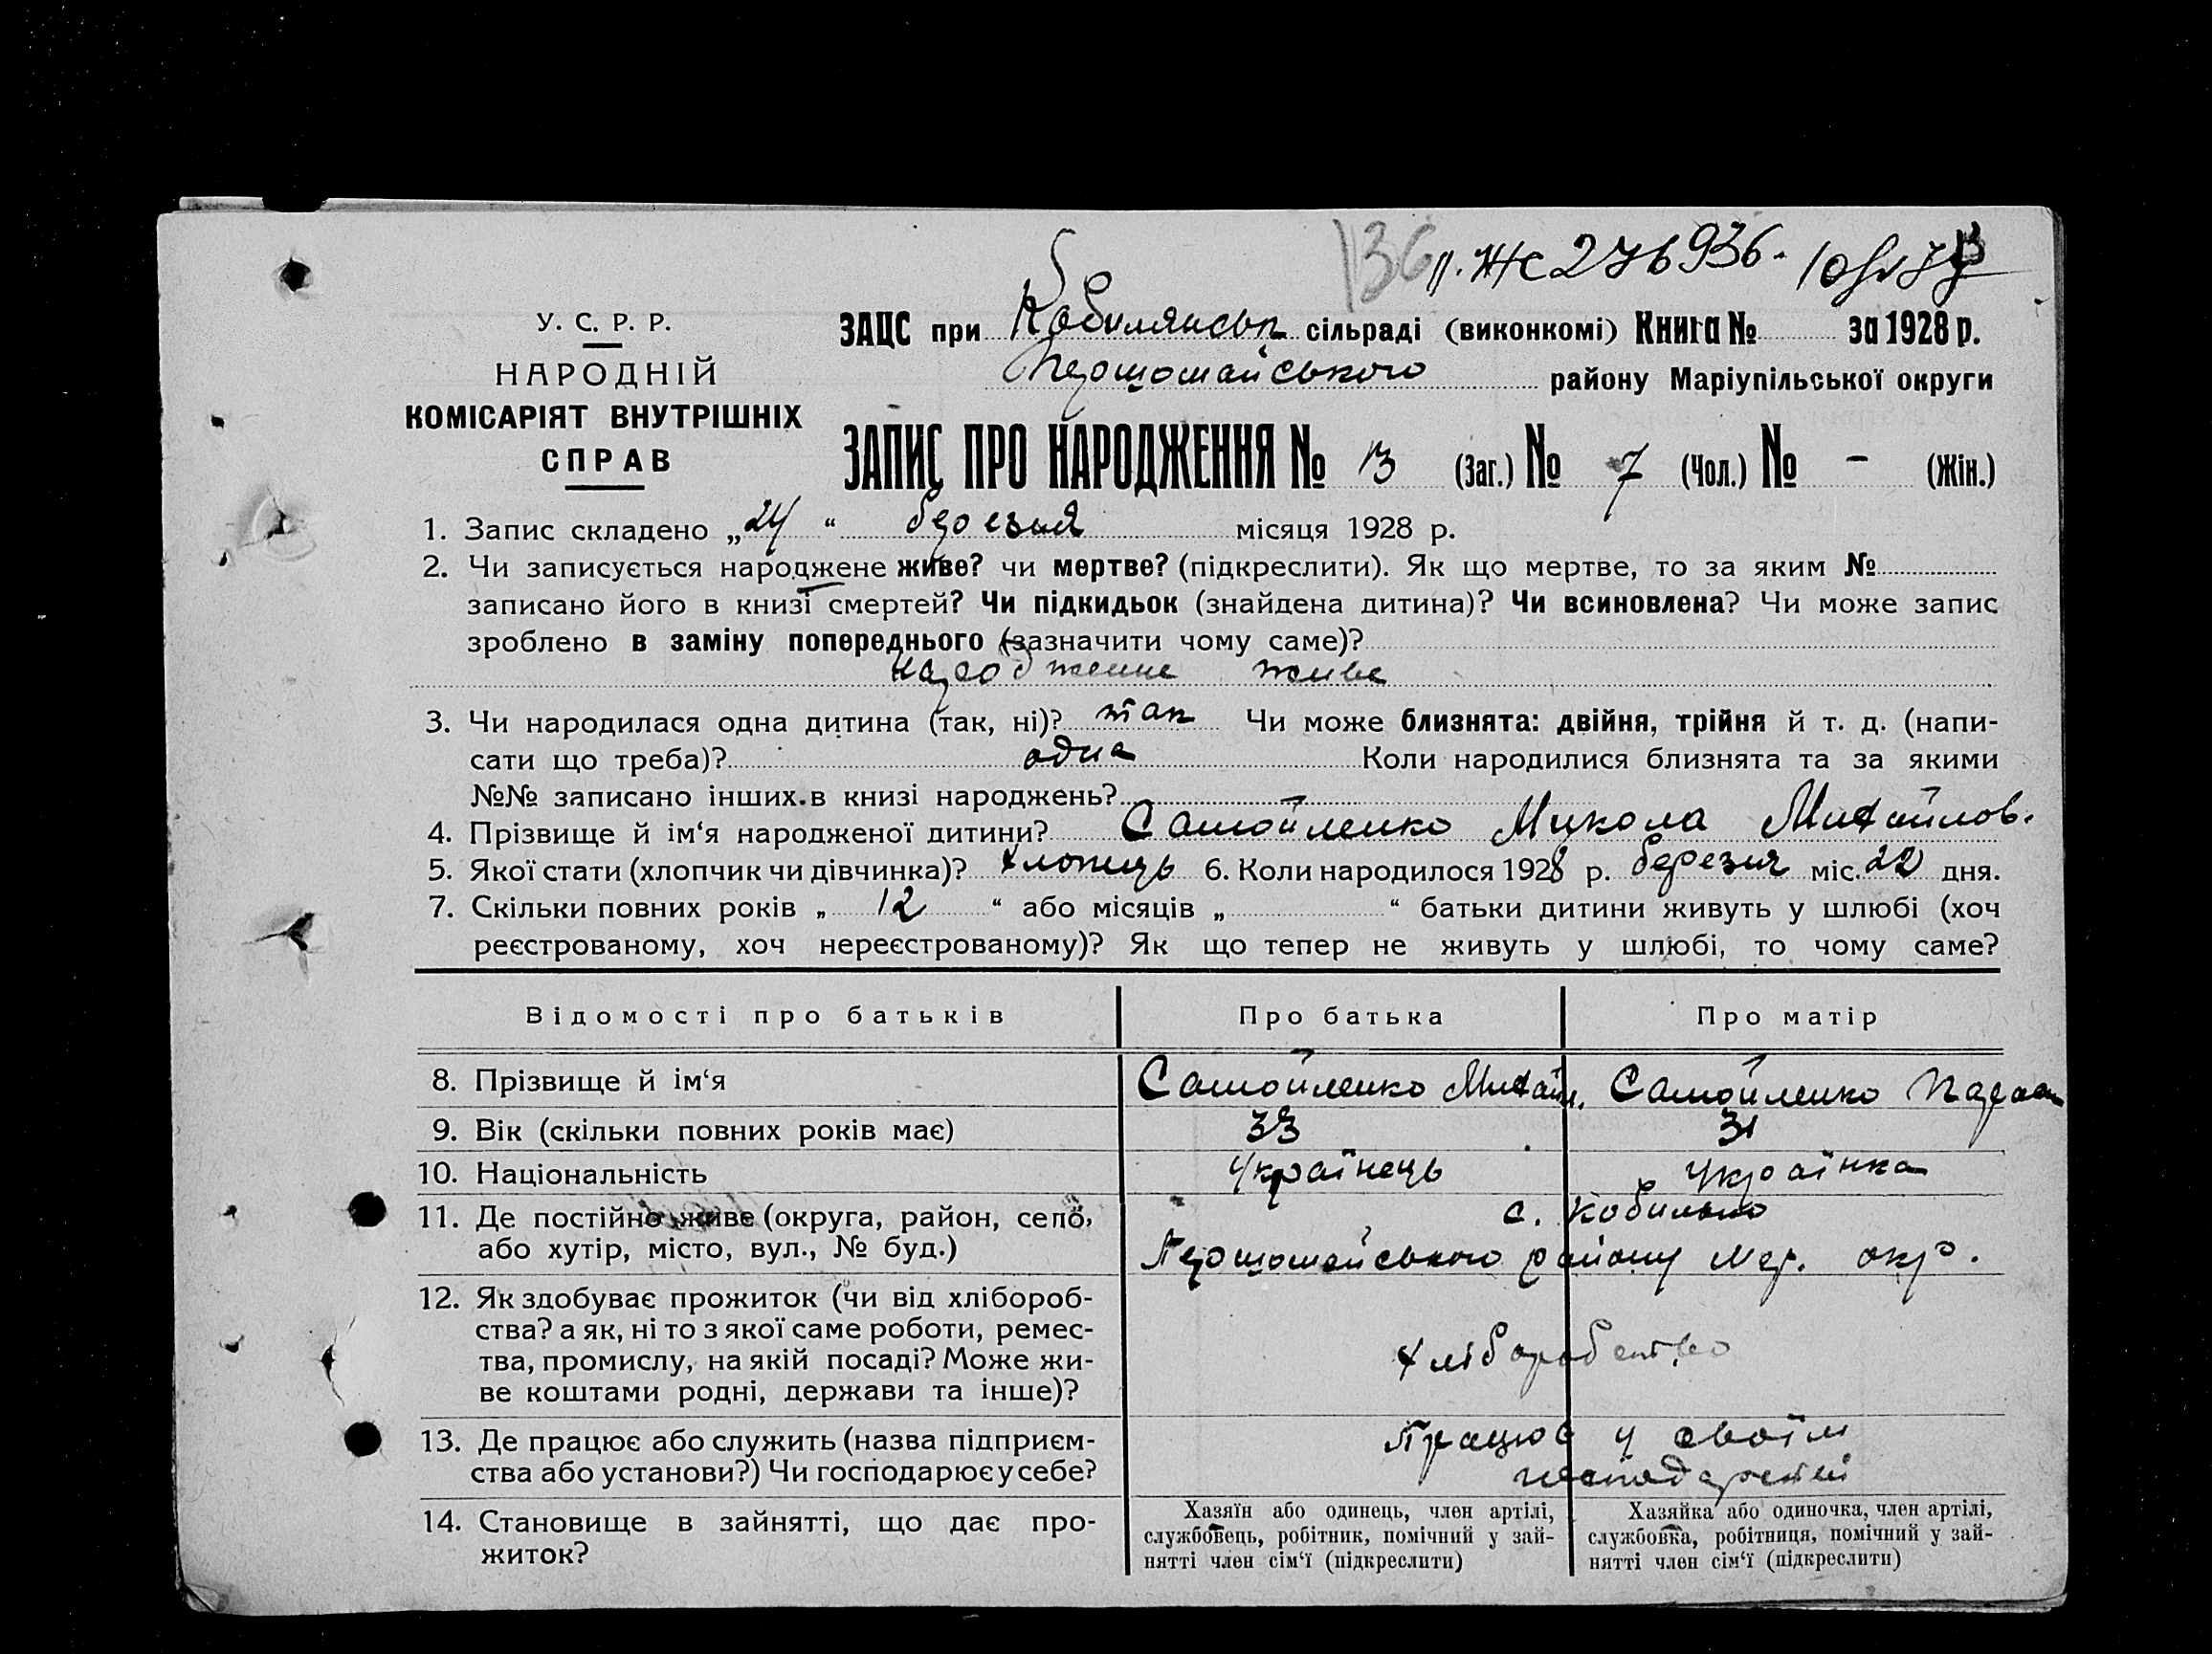 136 п. ЖС 276936.
У. С. Р. Р.
НАРОДНІЙ
КОМІСАРІЯТ ВНУТРІШНІХ
СПРАВ
ЗАЦС при Кобилянськ сільраді (виконкомі) Книга № за 1928 р.
Першомайського району Маріупільської округи
ЗАПИС ПРО НАРОДЖЕННЯ № 13 (Заг.) № 7 (Чол.) № - (Жін.)
1. Запис складено „24“ березня місяця 1928 р.
2. Чи записується народжене живе? чи мертве? (підкреслити). Як що мертве, то за яким №
записано його в книзі смертей? Чи підкидьок (знайдена дитина)? Чи всиновлена? Чи може запис
зроблено в заміну попереднього (зазначити чому саме)?
народженне живе
3. Чи народилася одна дитина (так, ні)? так Чи може близнята: двійня, трійня й т. д. (напи-
сати що треба)? одна Коли народилися близнята та за якими
№№ записано інших в книзі народжень?
4. Прізвище й ім‘я народженої дитини? Самойленко Микола Михайлов.
5. Якої стати (хлопчик чи дівчинка)? хлопець 6. Коли народилося 1928 р. березня міс. 22 дня.
7. Скільки повних років „ 12 “ або місяців „ “ батьки дитини живуть у шлюбі (хоч
реєстрованому, хоч нереєстрованому)? Як що тепер не живуть у шлюбі, то чому саме?
Відомості про батьків Про батька Про матір
8. Прізвище й ім‘я Самойленко Михайл. Самойленко
9. Вік (скільки повних років має) 33 31
10. Національність Українець Українка
11. Де постійно живе (округа, район, село, с. Кобильно
або хутір, місто, вул., № буд.) Першомайського району Мар. окр.
12. Як здобуває прожиток (чи від хлібороб-
ства? а як, ні то з якої саме роботи, ремес-
тва, промислу, на якій посаді? Може жи-
ве коштами родні, держави та інше)?
хліборобство
13. Де працює або служить (назва підприєм- Працює у своїм
ства або установи?) Чи господарює у себе? господарстві
14. Становище в зайнятті, що дає про-
житок?
Хазяїн або одинець, член артілі,
службовець, робітник, помічний у зай-
нятті член сім‘ї (підкреслити)
Хазяйка або одиночка, член артілі,
службовка, робітниця, помічний у зай-
нятті член сім‘ї (підкреслити)